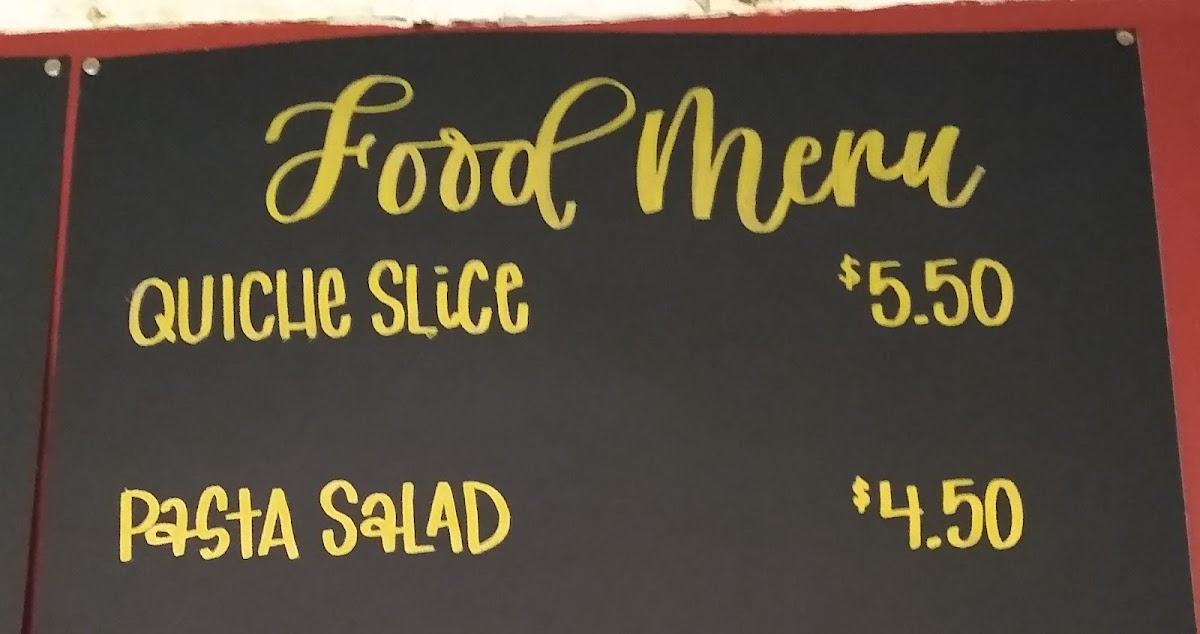 Food Menu
QUICHe SLiCe $5.50
PaStA SaLAD $4.50